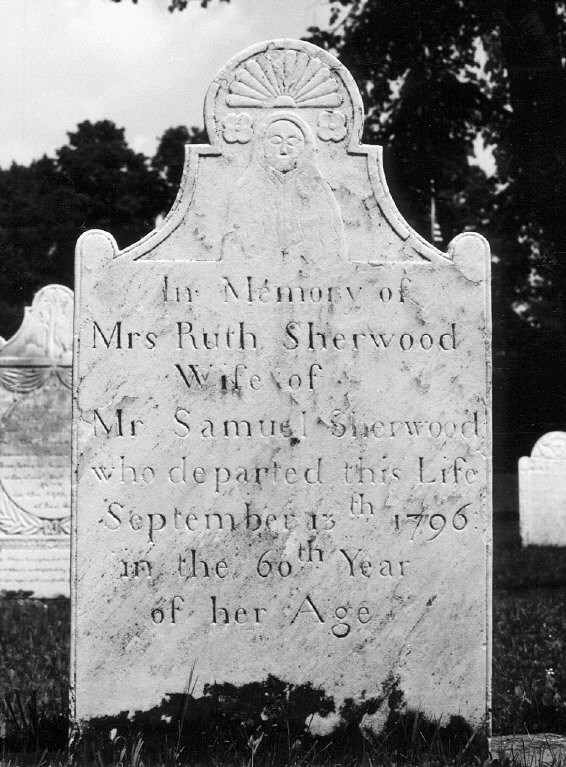 In Memory of
Mrs Ruth Sherwood
Wife of
Mr Samuel Sherwood
who departed this Life
September 13th 1796
in the 60th Year
of her Age